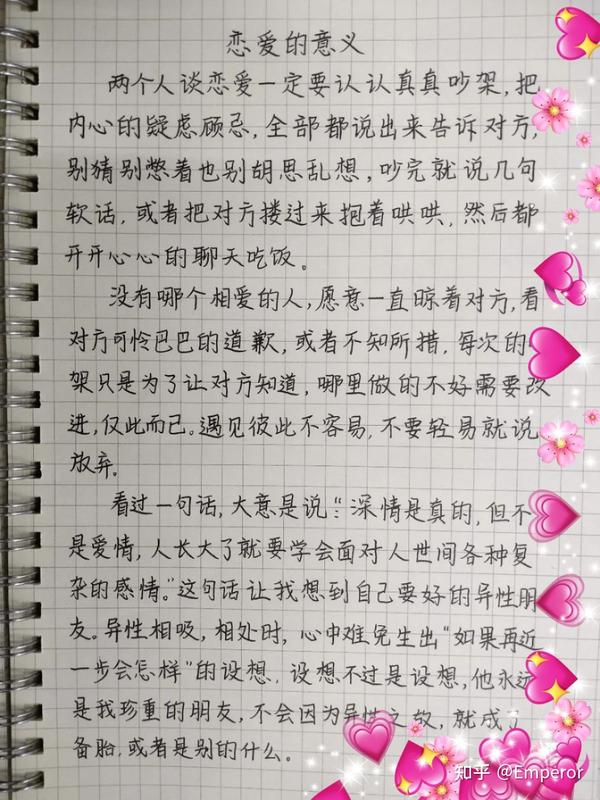 恋爱的意义
两个人谈恋爱一定要认认真真吵架,把
内心的疑虑顾忌,全部都说出来告诉对方,
别猜别憋着也别胡思乱想,吵完就说几句
软话,或者把对方搂过来抱着哄哄,然后都
开开心心的聊天吃饭。
没有哪个相爱的人,愿意一直晾着对方,看
对方可怜巴巴的道歉,或者不知所措,每次的
架只是为了让对方知道,哪里做的不好需要改
进,仅此而已。遇见彼此不容易,不要轻易就说
放弃。
看过一句话,大意是说:“深情是真的,但不
是爱情,人长大了就要学会面对人世间各种复
杂的感情。”这句话让我想到自己要好的异性朋
友。异性相吸,相处时,心中难免生出“如果再近
一步会怎样”的设想,设想不过是设想,他永远
是我珍重的朋友,不会因为异性之故,就成了
备胎,或者是别的什么。
知乎 @Emperor